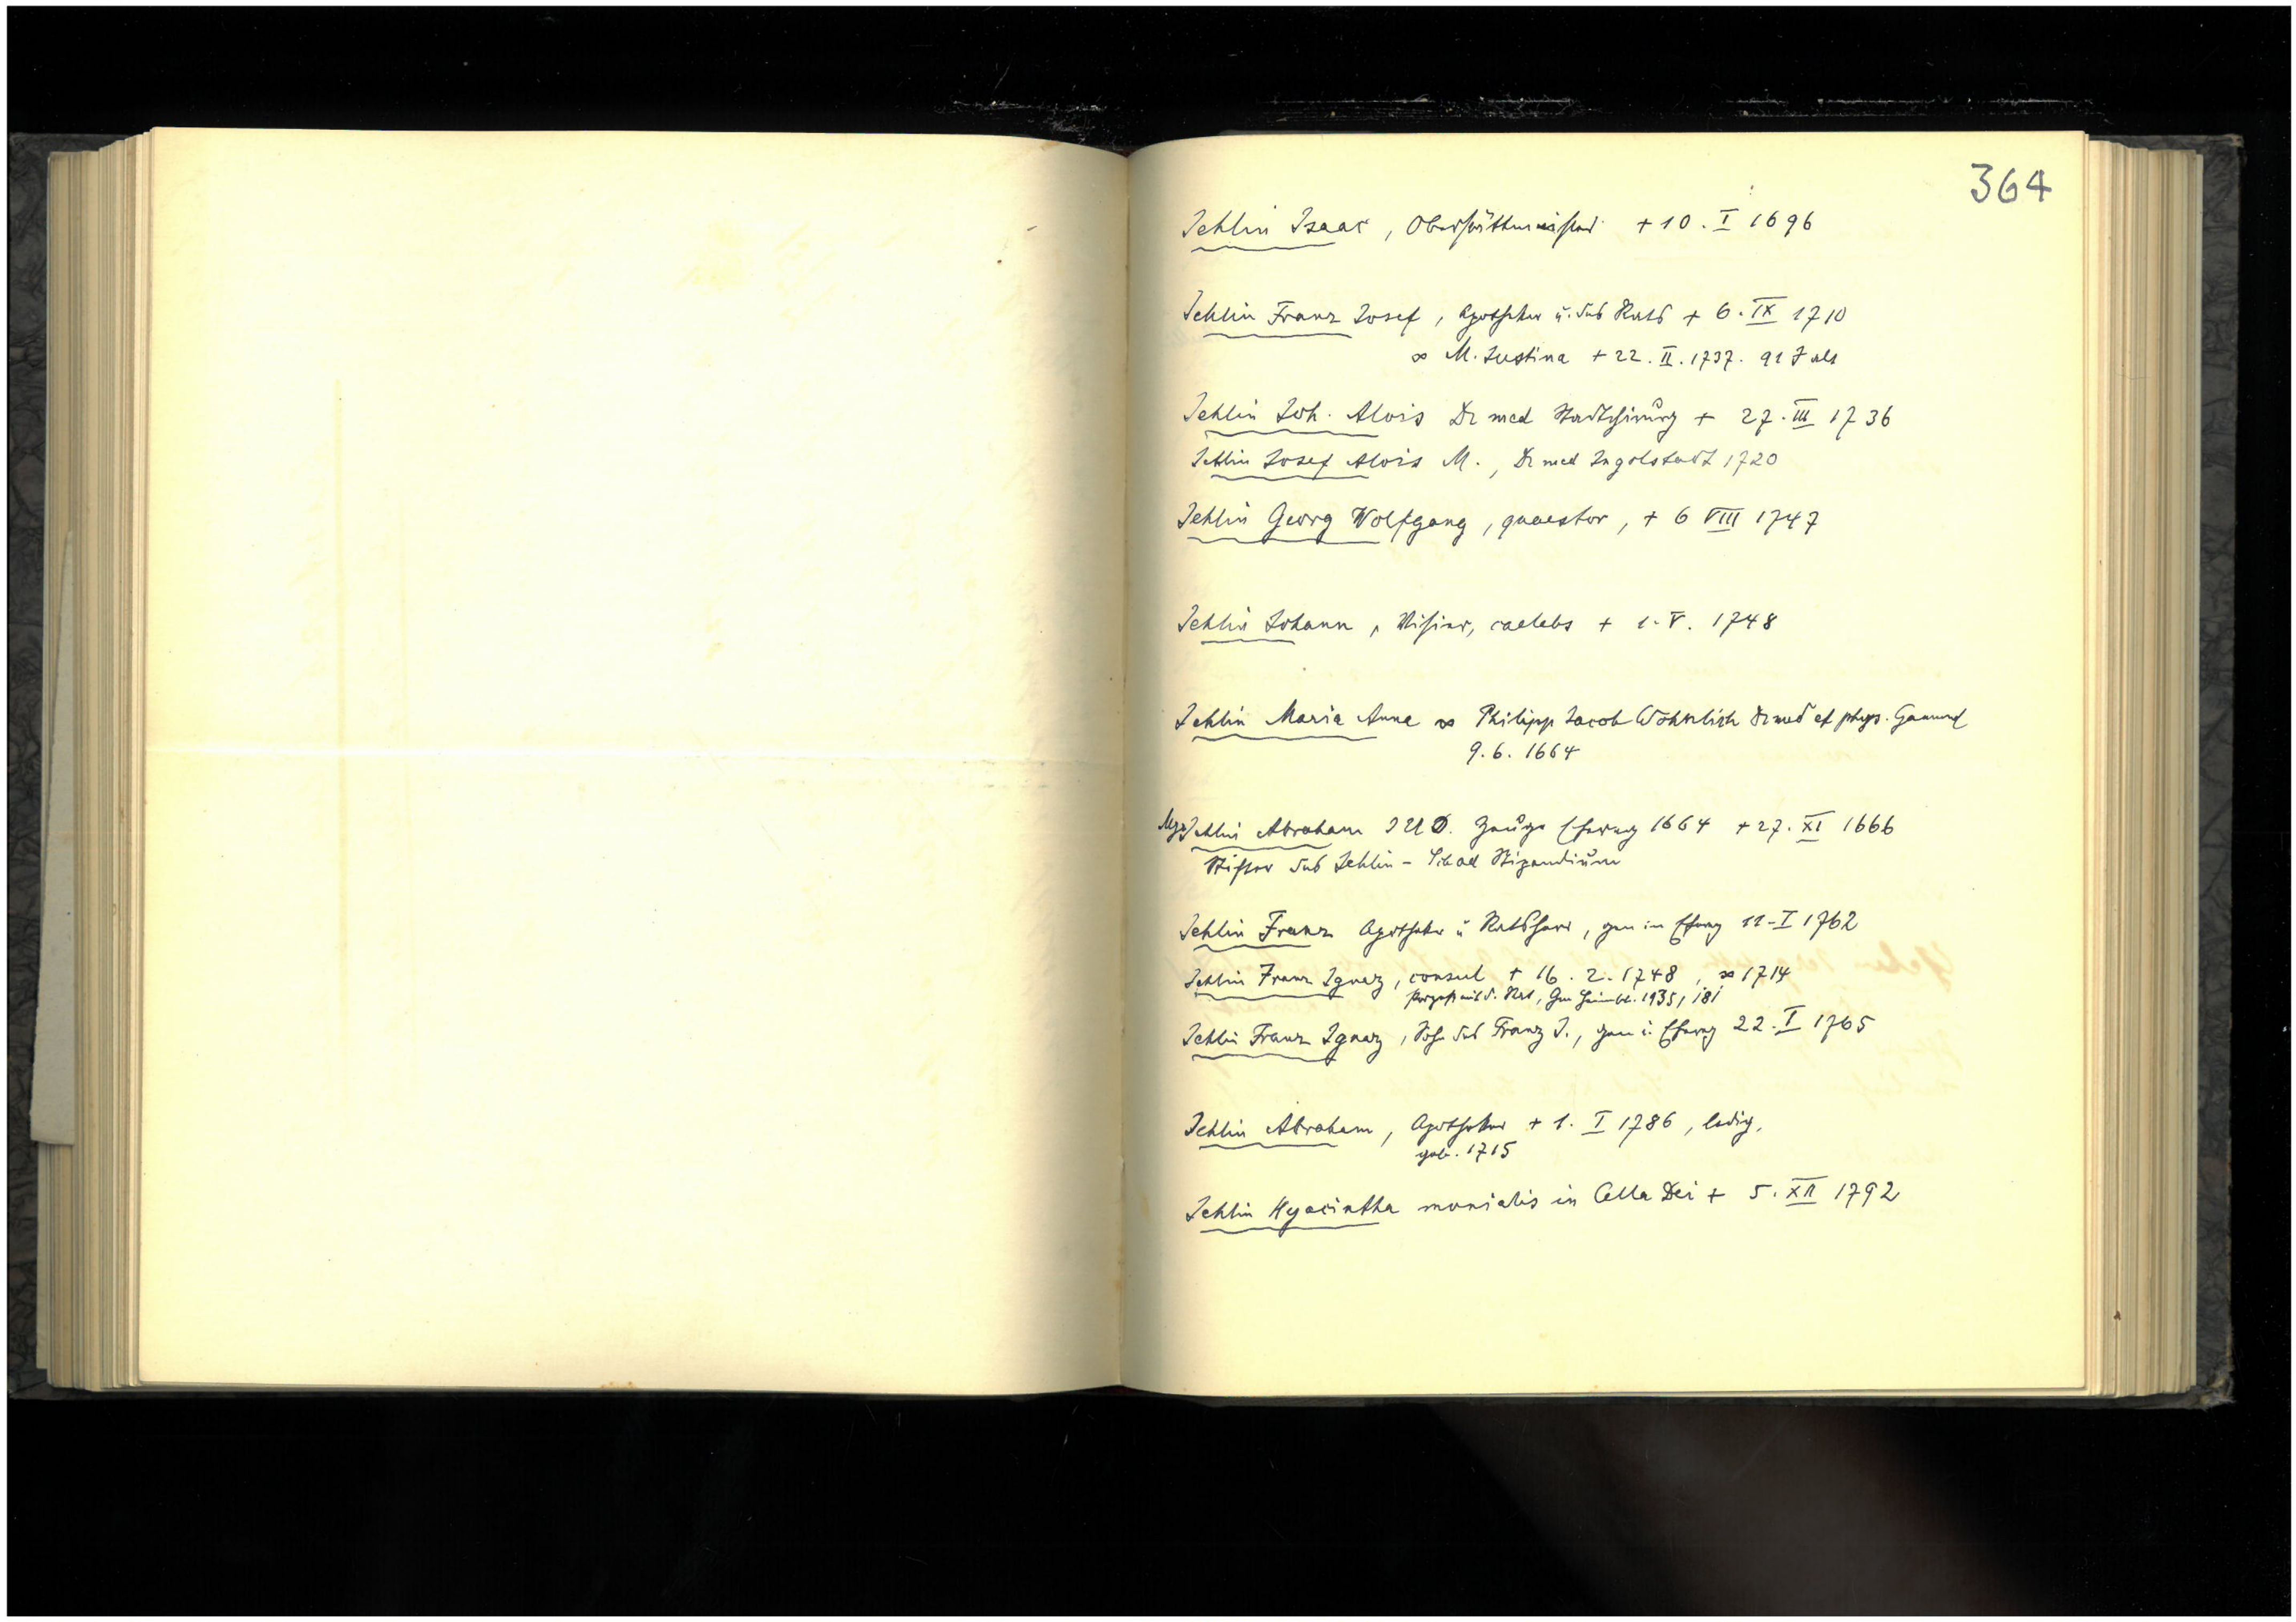 364
Jehlin Isaac, Oberstättmeister + 10. I 1696
Jehlin Franz Josef, Apotheker u. des Rats + 6. IX 1710
∞ M. Justina + 22. II. 1737. 91 J alt
Jehlin Joh. Alois Dr med Stadtchirurg + 27. III 1736
Jehlin Josef Alois M., Dr med Ingolstadt 1720
Jehlin Georg Wolfgang, quaestor, + 6 VIII 1747
Jehlin Johann, caelebs + 1. V. 1748
Jehlin Maria Anna ∞ Philipp Jacob Dr med et phys. Gamund
9. 6. 1664
Jehlin Abraham I U D. Zeuge Eherung 1664 + 27. XI 1666
Stifter des Jehlin - Stipendium
Jehlin Franz Apotheker u Ratsherr, gen in Eherung 11-I 1762
Jehlin Franz Ignaz, consul + 16. 2. 1748, ∞ 1714
d. Rat, Gm Heimatbl. 1935, 181
Jehlin Franz Ignaz, Sohn des Franz J., gen i. Eherung 22. I 1765
Jehlin Abraham, Apotheker + 1. I 1786, ledig,
geb. 1715
Jehlin Hyacintha monialis in Cella Dei + 5. XII 1792